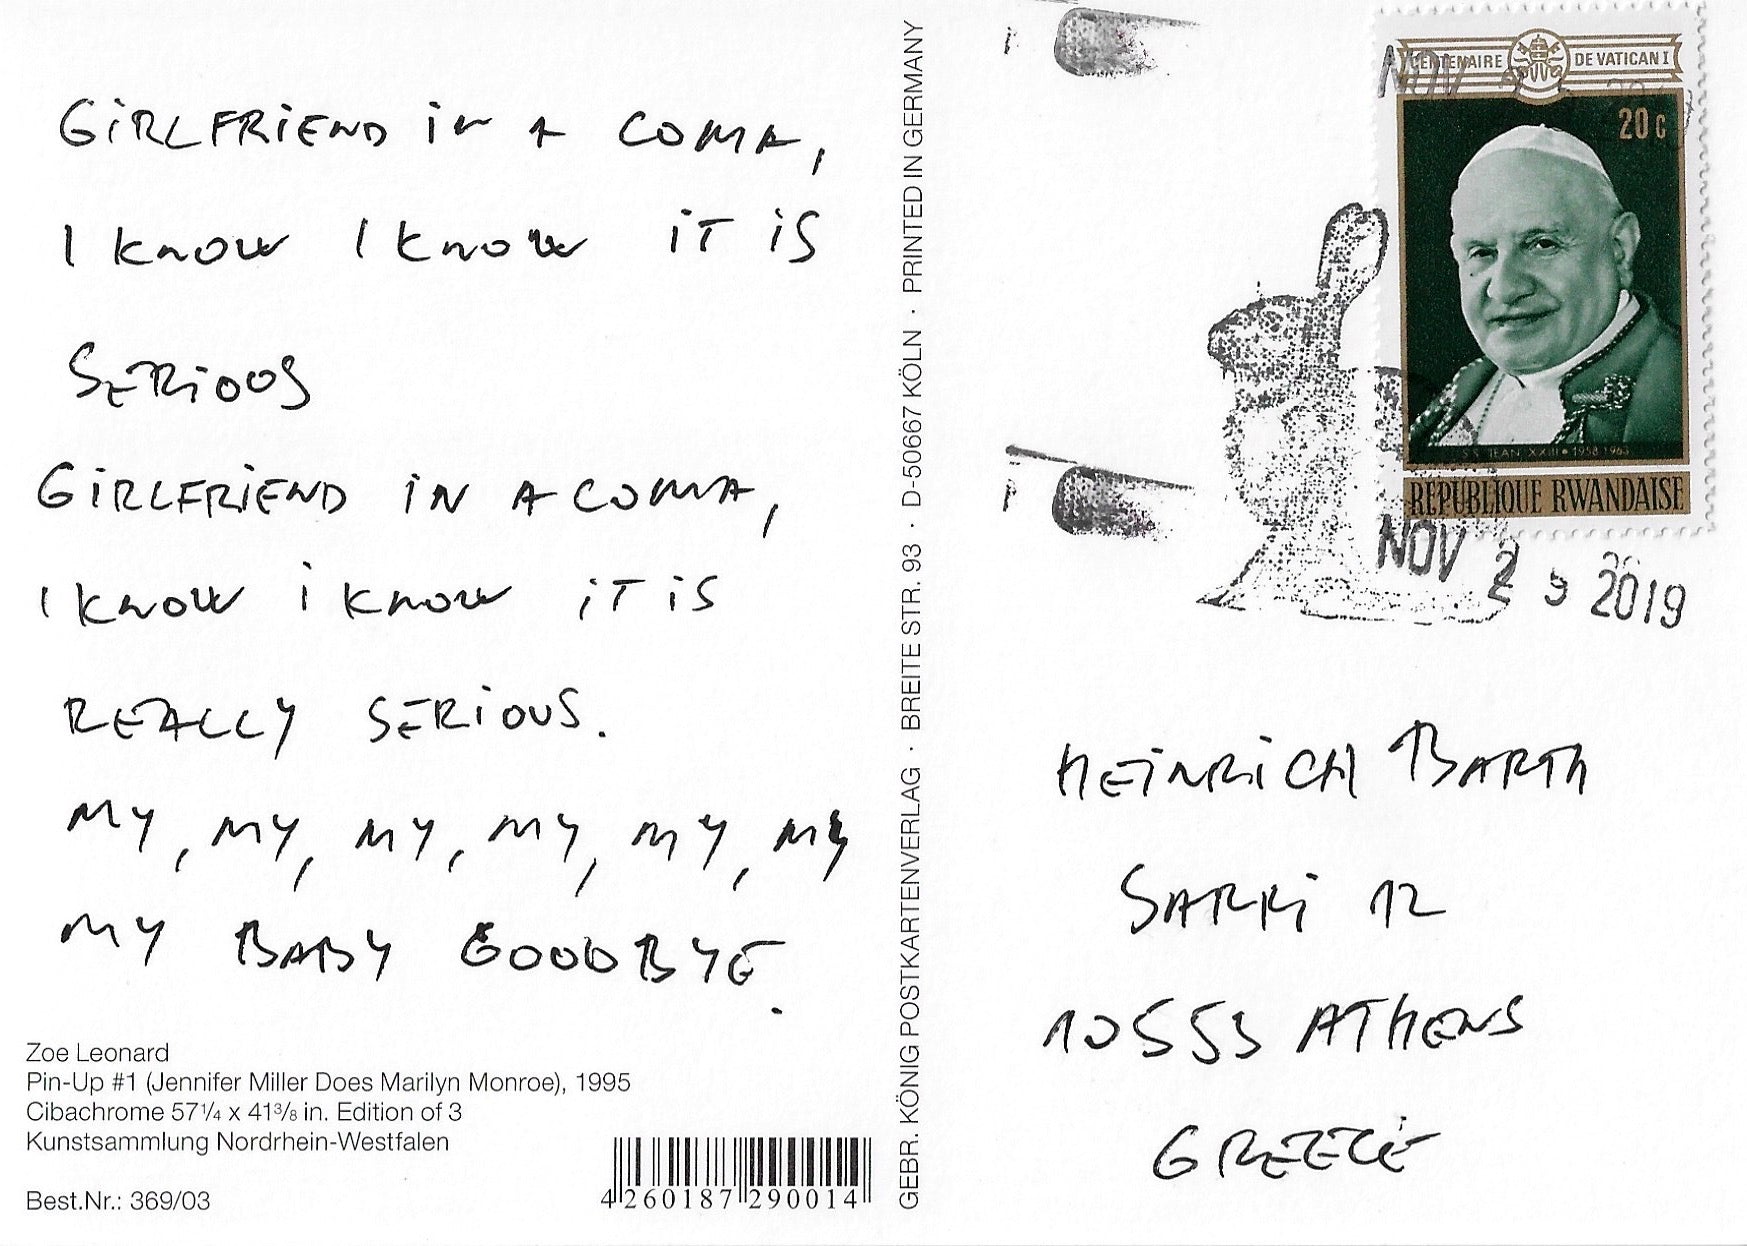 GiRLFRiEND iN A COMA,
I KNOW I KNOW iT iS
SERiOUS
GiRLFRiEND IN A COMA,
I KNOW i KNOW iT iS
REALLY SERiOUS.
MY, MY, MY, MY, MY, MY
MY BABY GOODBYE.
Zoe Leonard
Pin-Up #1 (Jennifer Miller Does Marilyn Monroe), 1995
Cibachrome 57¼ x 41⅜ in. Edition of 3
Kunstsammlung Nordrhein-Westfalen
Best.Nr.: 369/03
4 260187 290014
GEBR. KÖNIG POSTKARTENVERLAG · BREITE STR. 93 · D-50667 KÖLN · PRINTED IN GERMANY
CENTENAIRE DE VATICAN I
NOV
20 C
S.S. JEAN XXIII • 1958-1963
REPUBLIQUE RWANDAISE
NOV 2 2019
HEiNRiCH BARTH
SARRi 12
10553 ATHENS
GREECE